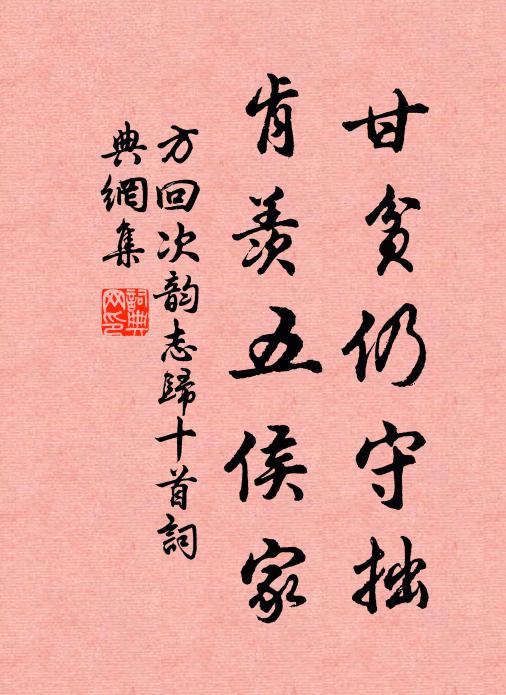 甘貧仍守拙
肯羨五侯家
方回次韵志歸十首詞
典網集
詞典網印